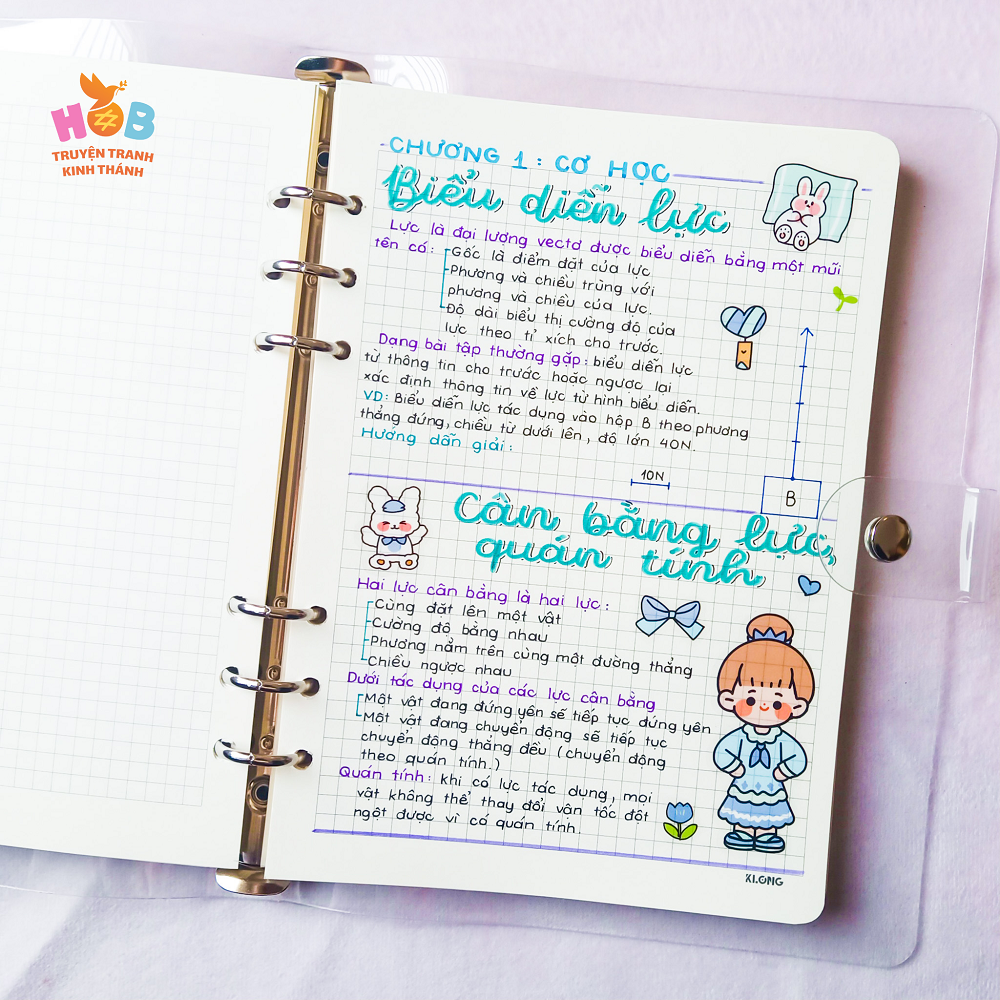 HOB
TRUYỆN TRANH
KINH THÁNH
CHƯƠNG 1: CƠ HỌC
Biểu diễn lực
Lực là đại lượng vectơ được biểu diễn bằng một mũi
tên có:
Gốc là điểm đặt của lực
Phương và chiều trùng với
phương và chiều của lực.
Độ dài biểu thị cường độ của
lực theo tỉ xích cho trước.
Dạng bài tập thường gặp: biểu diễn lực
từ thông tin cho trước hoặc ngược lại
xác định thông tin về lực từ hình biểu diễn.
VD: Biểu diễn lực tác dụng vào hộp B theo phương
thẳng đứng, chiều từ dưới lên, độ lớn 40N.
Hướng dẫn giải:
10N
B
Cân bằng lực,
quán tính
Hai lực cân bằng là hai lực:
Cùng đặt lên một vật
Cường độ bằng nhau
Phương nằm trên cùng một đường thẳng
Chiều ngược nhau
Dưới tác dụng của các lực cân bằng
Một vật đang đứng yên sẽ tiếp tục đứng yên
Một vật đang chuyển động sẽ tiếp tục
chuyển động thẳng đều (chuyển động
theo quán tính.)
Quán tính: khi có lực tác dụng, mọi
vật không thể thay đổi vận tốc đột
ngột được vì có quán tính.
KLONG